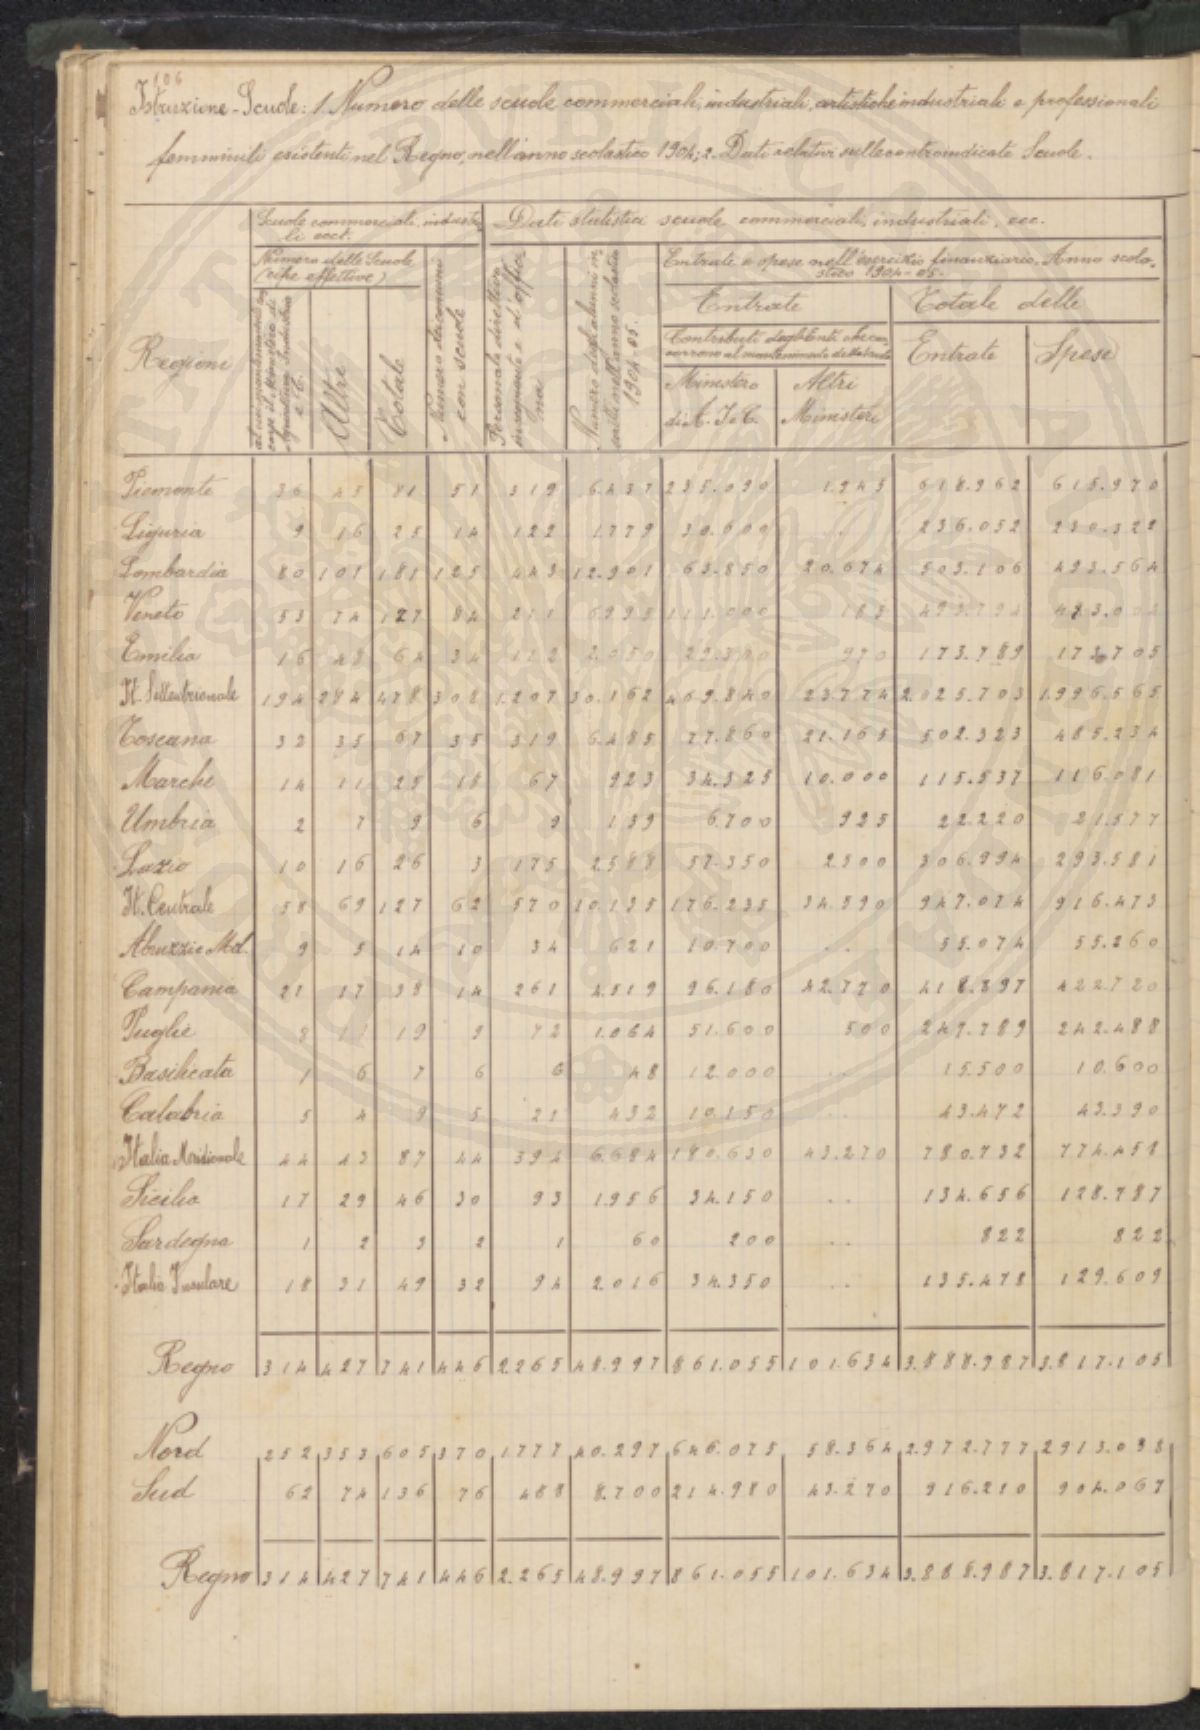 106
Istruzione - Scuole: 1. Numero delle scuole commerciali, industriali, artistiche industriali e professionali
femminili esistenti nel Regno, nell'anno scolastico 1904; 2. Dati relativi sulle controindicate Scuole.
Scuole commerciali, industriali ecct.
Dati statistici scuole commerciali, industriali, ecc.
Numero delle Scuole
(cifre effettive)
Entrate e spese nell'esercizio finanziario. Anno scolastico 1904-05.
Entrate
Totale delle
Regioni
Altre
Totale
Numero dei comuni con scuole
Personale direttivo insegnante e d'officina
1904-05.
Contributi degli Enti che concorrono al mantenimento delle scuole
Ministero di A. I. e C.
Altri Ministeri
Entrate
Spese
Piemonte 36 45 81 51 319 6.437 235.090 1.945 618.962 615.970
Liguria 9 16 25 14 122 1.779 30.600 .. 236.052 230.322
Lombardia 80 101 181 125 443 12.901 63.850 20.674 503.106 493.564
Veneto 53 74 127 84 211 6.995 111.000 185 493.794
Emilia 16 48 64 34 112 2.050 29.300 970 173.789 173.705
It. Settentrionale 194 284 478 308 1.207 30.162 469.840 23.774 2.025.703 1.996.565
Toscana 32 35 67 35 319 6.485 77.860 21.165 502.323 485.234
Marche 14 11 25 18 67 923 34.325 10.000 115.537 116.081
Umbria 2 7 9 6 9 139 6.700 925 22.220 21.577
Lazio 10 16 26 3 175 2588 57.350 2500 306.994 293.581
It. Centrale 58 69 127 62 570 10.135 176.235 34.590 947.074 916.473
Abruzzi e Mol. 9 5 14 10 34 621 10.700 .. 55.074 55.260
Campania 21 17 38 14 261 4.519 96.180 42.770 418.897 422.720
Puglie 8 11 19 9 72 1.064 51.600 500 247.789 242.488
Basilicata 1 6 7 6 6 48 12.000 .. 15.500 10.600
Calabria 5 4 9 5 21 432 10.150 .. 43.472 43.390
Italia Meridionale 44 43 87 44 394 6.684 180.630 43.270 780.732 774.458
Sicilia 17 29 46 30 93 1.956 34.150 .. 134.656 128.787
Sardegna 1 2 3 2 1 60 200 .. 822 822
Italia Insulare 18 31 49 32 94 2.016 34.350 .. 135.478 129.609
Regno 314 427 741 446 2.265 48.997 861.055 101.634 3.888.987 3.817.105
Nord 252 353 605 370 1777 40.297 646.075 58.364 2.972.777 2.913.038
Sud 62 74 136 76 488 8.700 214.980 43.270 916.210 904.067
Regno 314 427 741 446 2.265 48.997 861.055 101.634 3.888.987 3.817.105